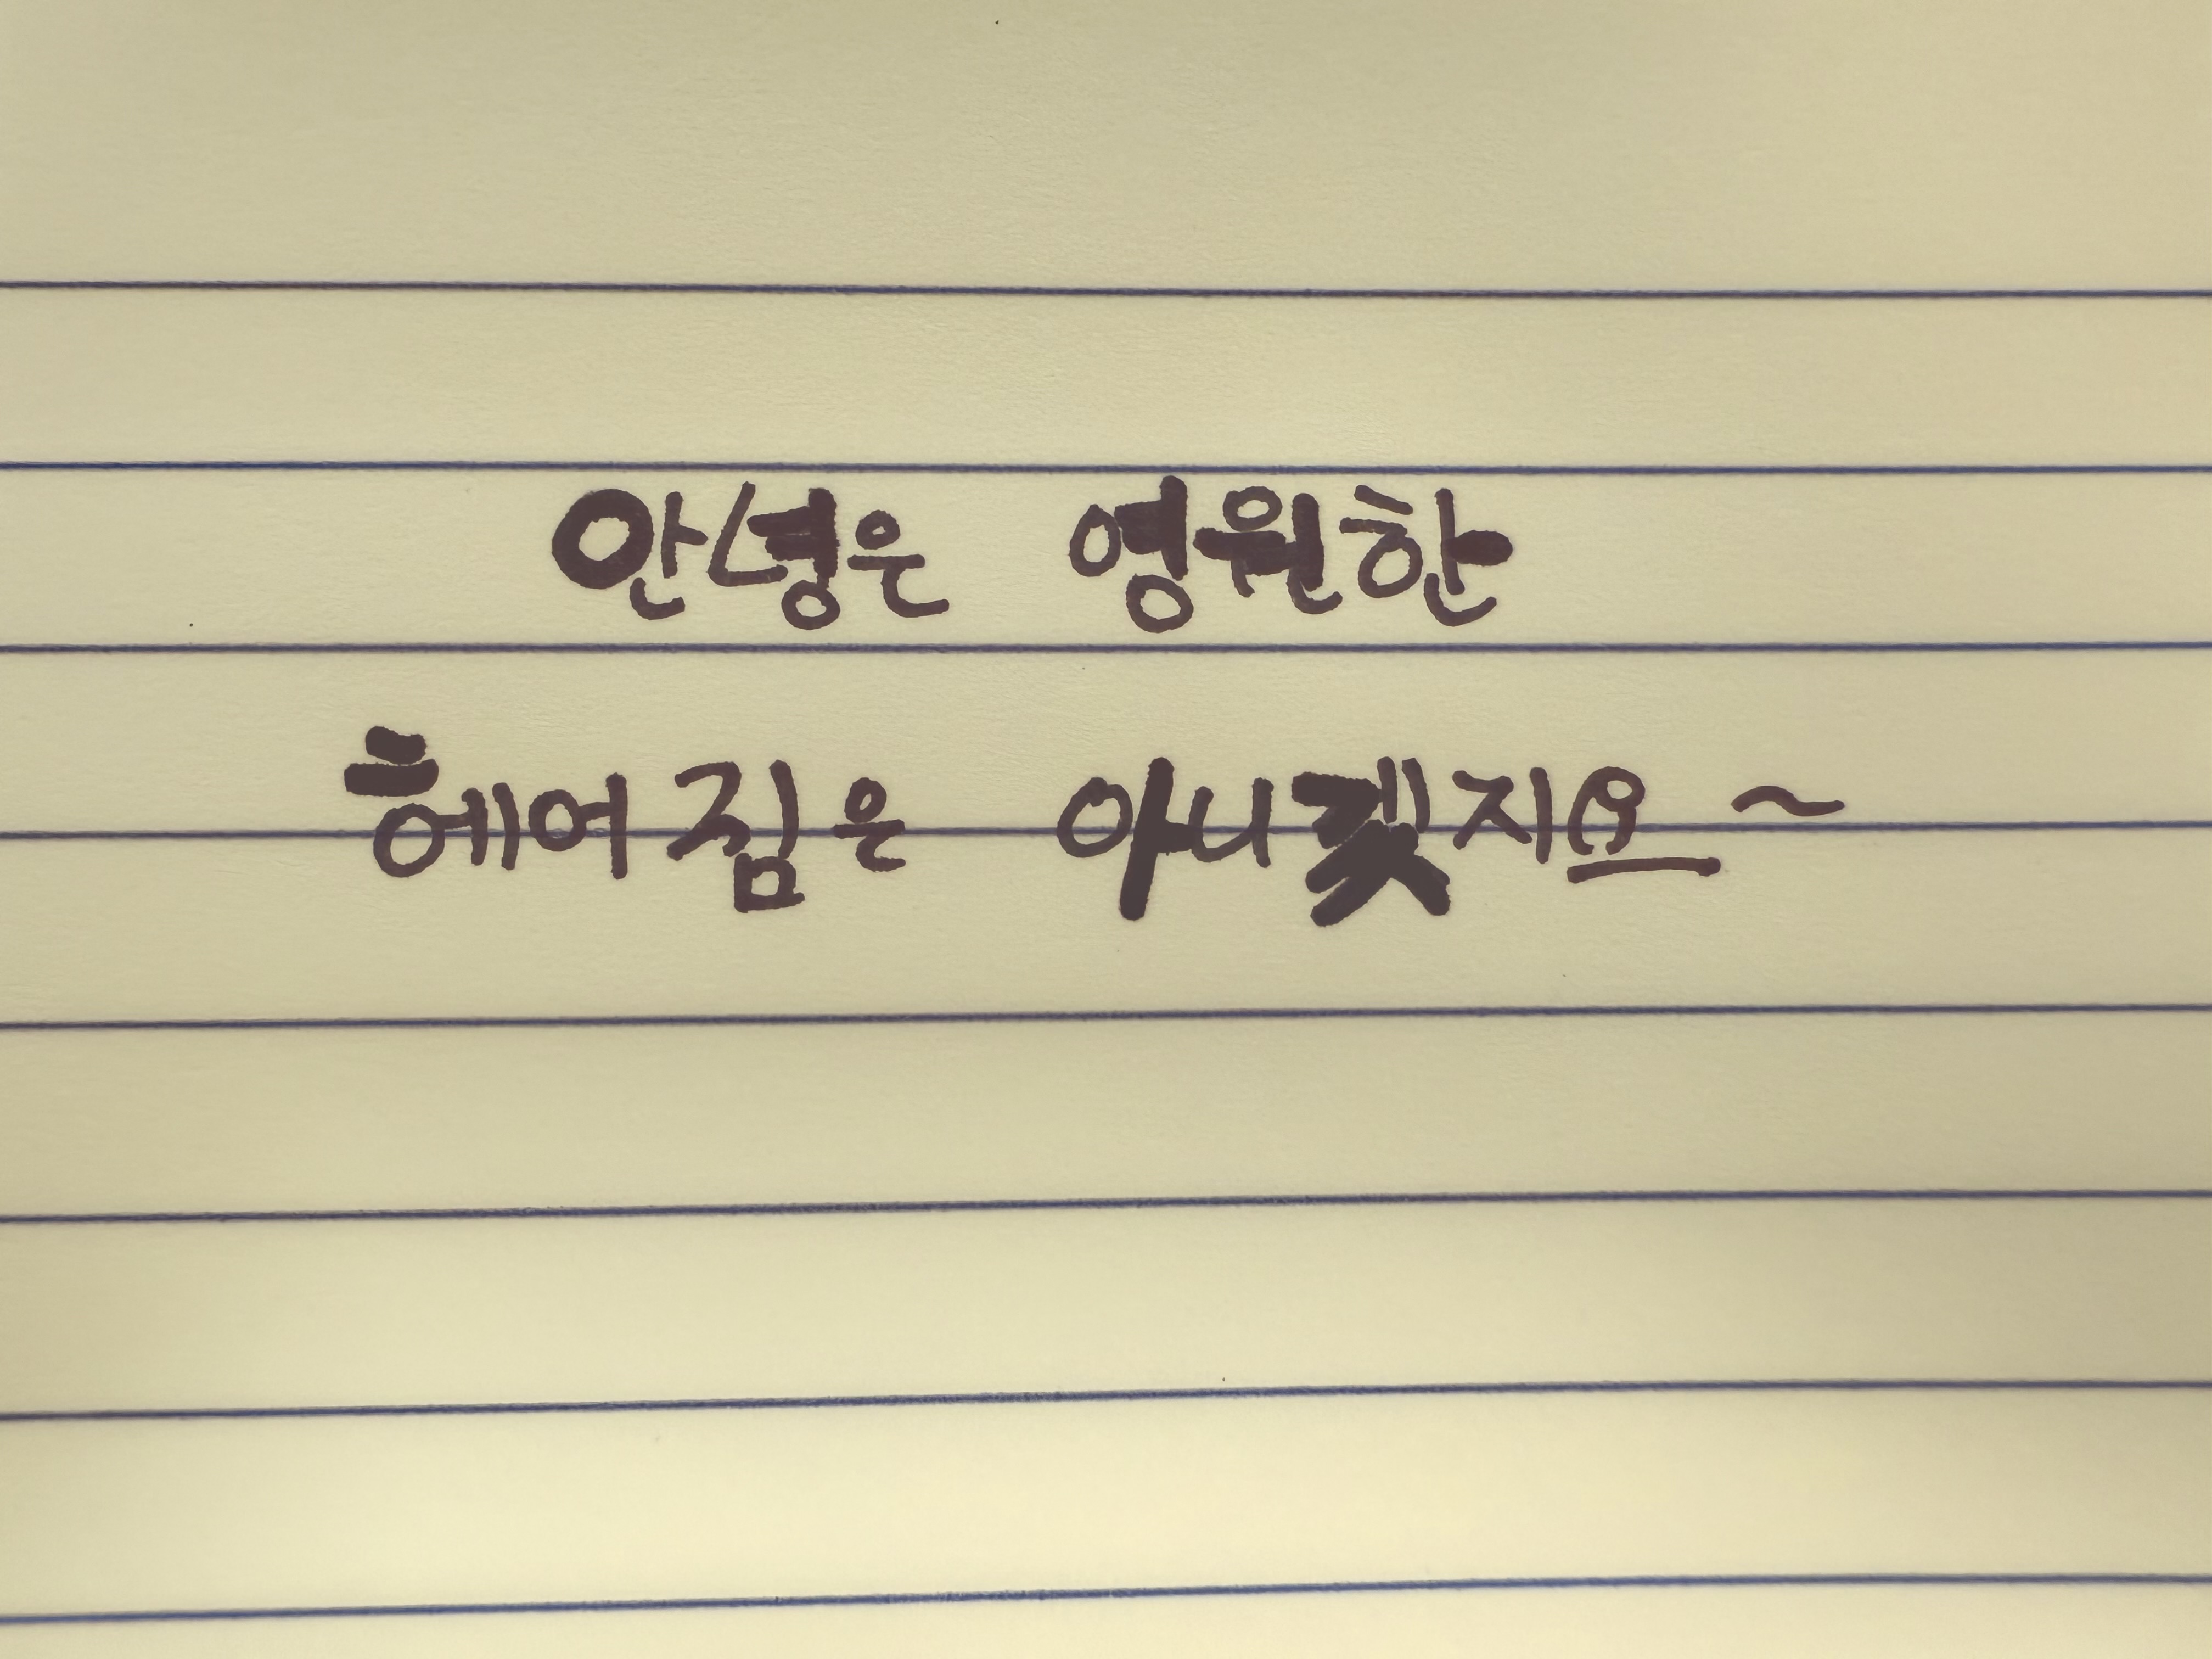 안녕은 영원한
헤어짐은 아니겠지요~